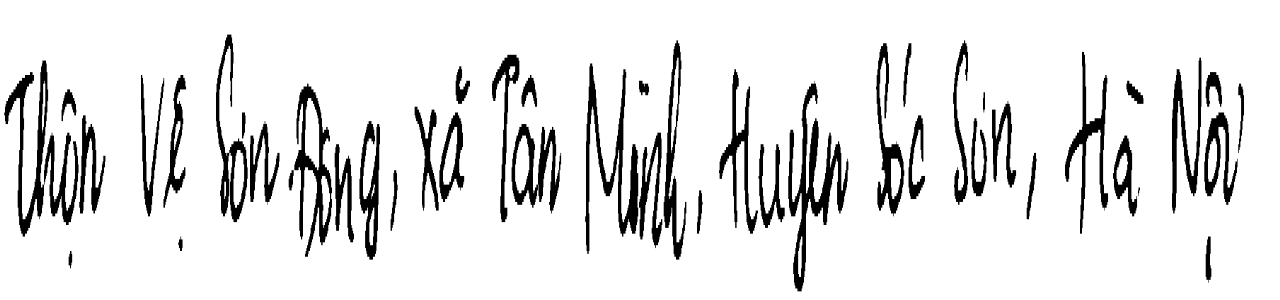 Thộn Vệ Sơn Đông, xã Tân Minh, Huyện Sóc Sơn, Hà Nội